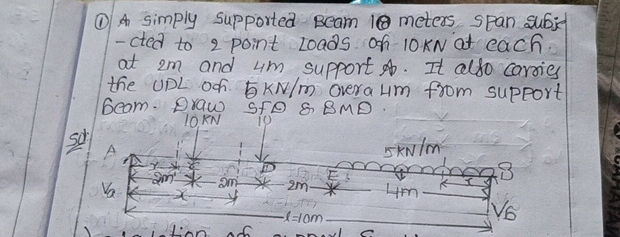 ① A simply supported Beam 10 meters span subje
-cted to 2 point Loads of 10KN at each
at 2m and 4m support A. It also carries
the UDL of 5KN/m over a 4m from support
Beam. Draw SFD & BMD.
10 KN 10
Sol:
A C D E 5KN/m B
2m 2m 2m 4m
Va x VB
l=10m